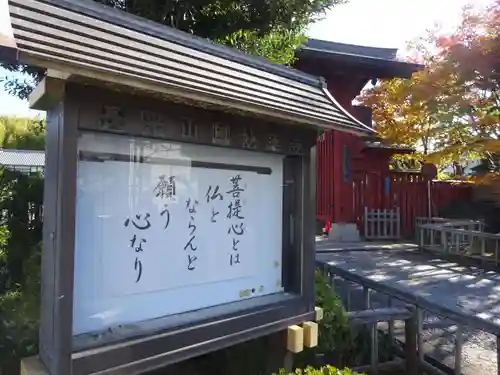 菩提心とは
仏と
ならんと
願う
心なり